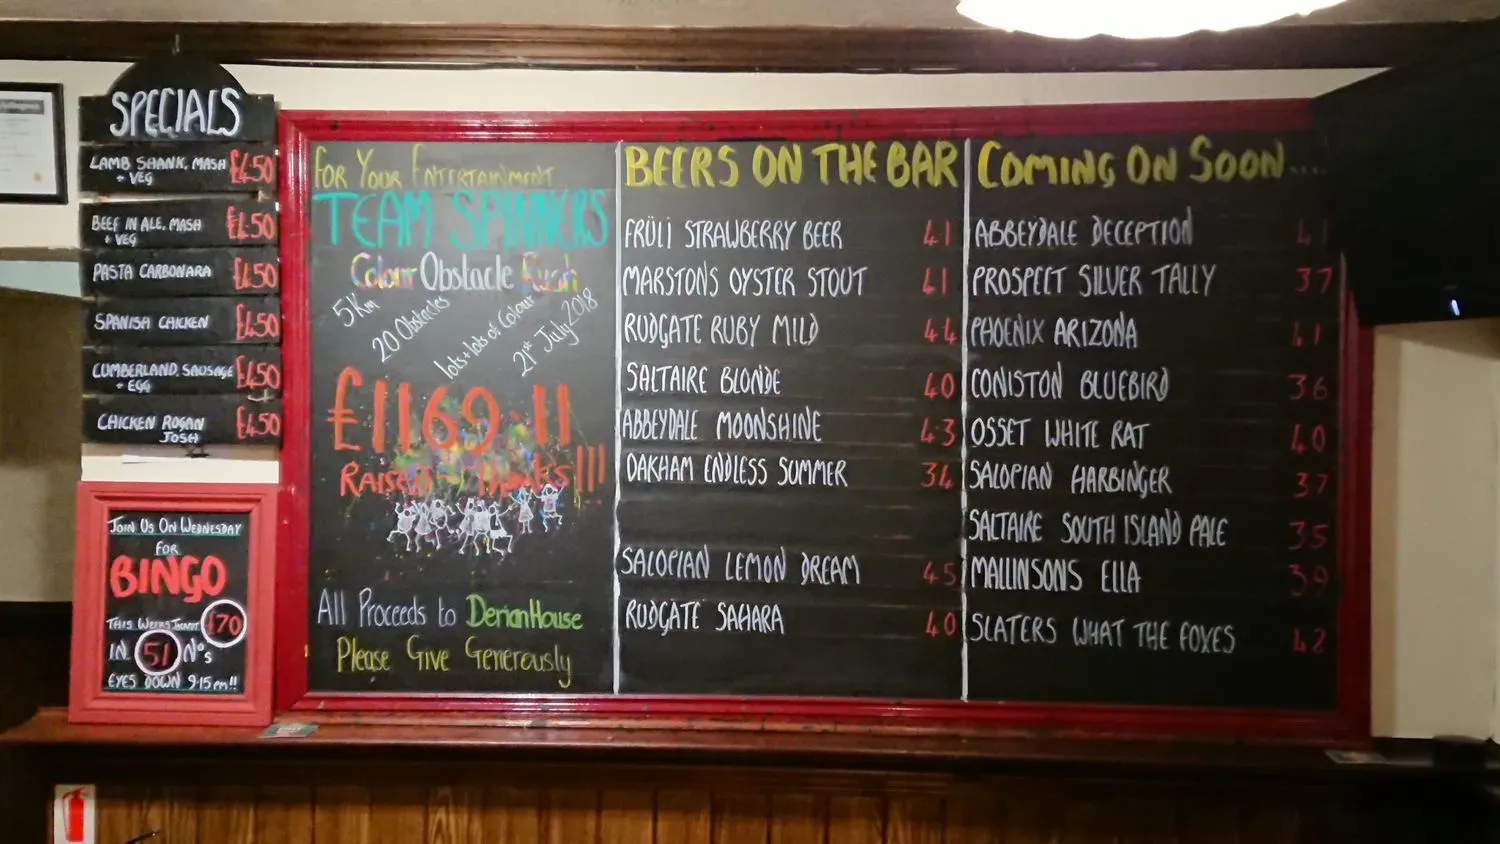 SPECIALS
LAMB SHANK, MASH £4.50
+ VEG
BEEF IN ALE, MASH £4.50
+ VEG
PASTA CARBONARA £4.50
SPANISH CHICKEN £4.50
CUMBERLAND, SAUSAGE £4.50
+ EGG
CHICKEN ROGAN £4.50
JOSH
JOIN US ON WEDNESDAY
FOR
BINGO
THIS WEEKS £70
IN 51 Nº's
EYES DOWN 9·15pm!!
FOR YOUR ENTERTAINMENT
TEAM SPINNERS
Colour Obstacle Rush
5Km
20 Obstacles
lots + lots of Colour
21st July 2018
£1169.11
RAISED - THANKS!!!
All Proceeds to DerianHouse
Please Give Generously
BEERS ON THE BAR
FRÜLI STRAWBERRY BEER 4.1
MARSTON'S OYSTER STOUT 4.1
RUDGATE RUBY MILD 4.4
SALTAIRE BLONDE 4.0
ABBEYDALE MOONSHINE 4.3
OAKHAM ENDLESS SUMMER 3.4
SALOPIAN LEMON DREAM 4.5
RUDGATE SAHARA 4.0
COMING ON SOON....
ABBEYDALE DECEPTION 4.1
PROSPECT SILVER TALLY 3.7
PHOENIX ARIZONA 4.1
CONISTON BLUEBIRD 3.6
OSSET WHITE RAT 4.0
SALOPIAN HARBINGER 3.7
SALTAIRE SOUTH ISLAND PALE 3.5
MALLINSONS ELLA 3.9
SLATERS WHAT THE FOXES 4.2